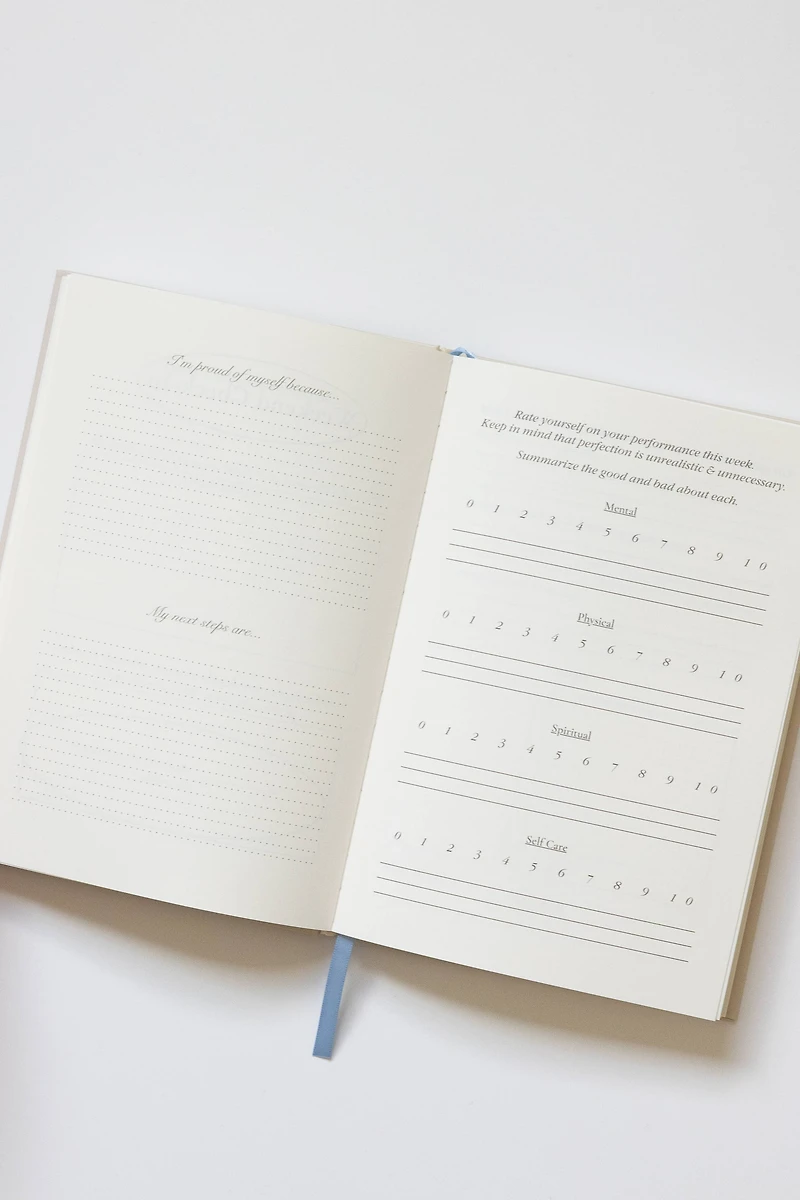 I'm proud of myself because...
My next steps are...
Rate yourself on your performance this week.
Keep in mind that perfection is unrealistic & unnecessary.
Summarize the good and bad about each.
Mental
0 1 2 3 4 5 6 7 8 9 10
Physical
0 1 2 3 4 5 6 7 8 9 10
Spiritual
0 1 2 3 4 5 6 7 8 9 10
Self Care
0 1 2 3 4 5 6 7 8 9 10